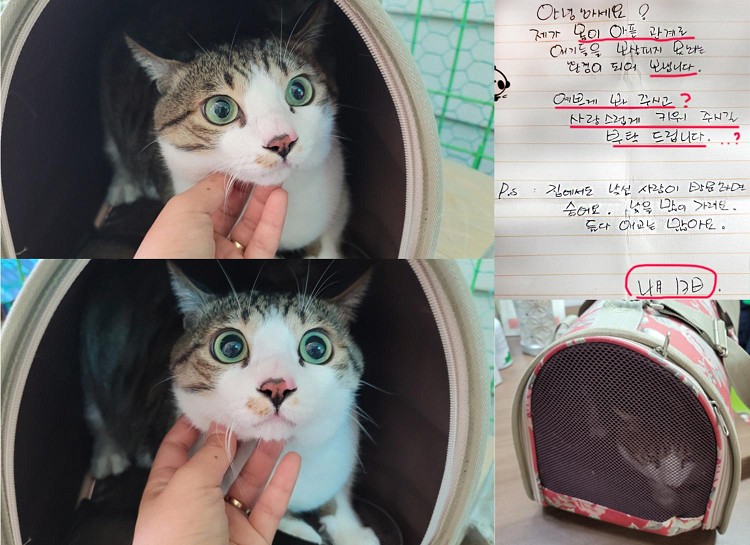 안녕하세요?
제가 몸이 아픈 관계로
애기들을 보살피지 못하는
환경이 되어 보냅니다.
예쁘게 봐 주시고?
사랑스럽게 키워 주시길
부탁 드립니다..?
P.s : 집에서도 낯선 사람이 방문하면
숨어요. 낯을 많이 가려요.
둘다 애교는 많아요.